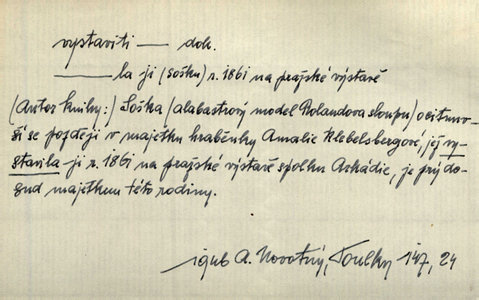 vystaviti — dok.
——la ji (sošku) r. 1861 na pražské výstavě
(Autor knihy:) Soška (alabastrový model Rolandova sloupu) ocitnuv-
ší se později v majetku hraběnky Amalie Klebelsbergové, jež vy-
stavila ji r. 1861 na pražské výstavě spolku Arkádie, je prý do-
sud majetkem této rodiny.
A. Novotný, Toulky 147, 24